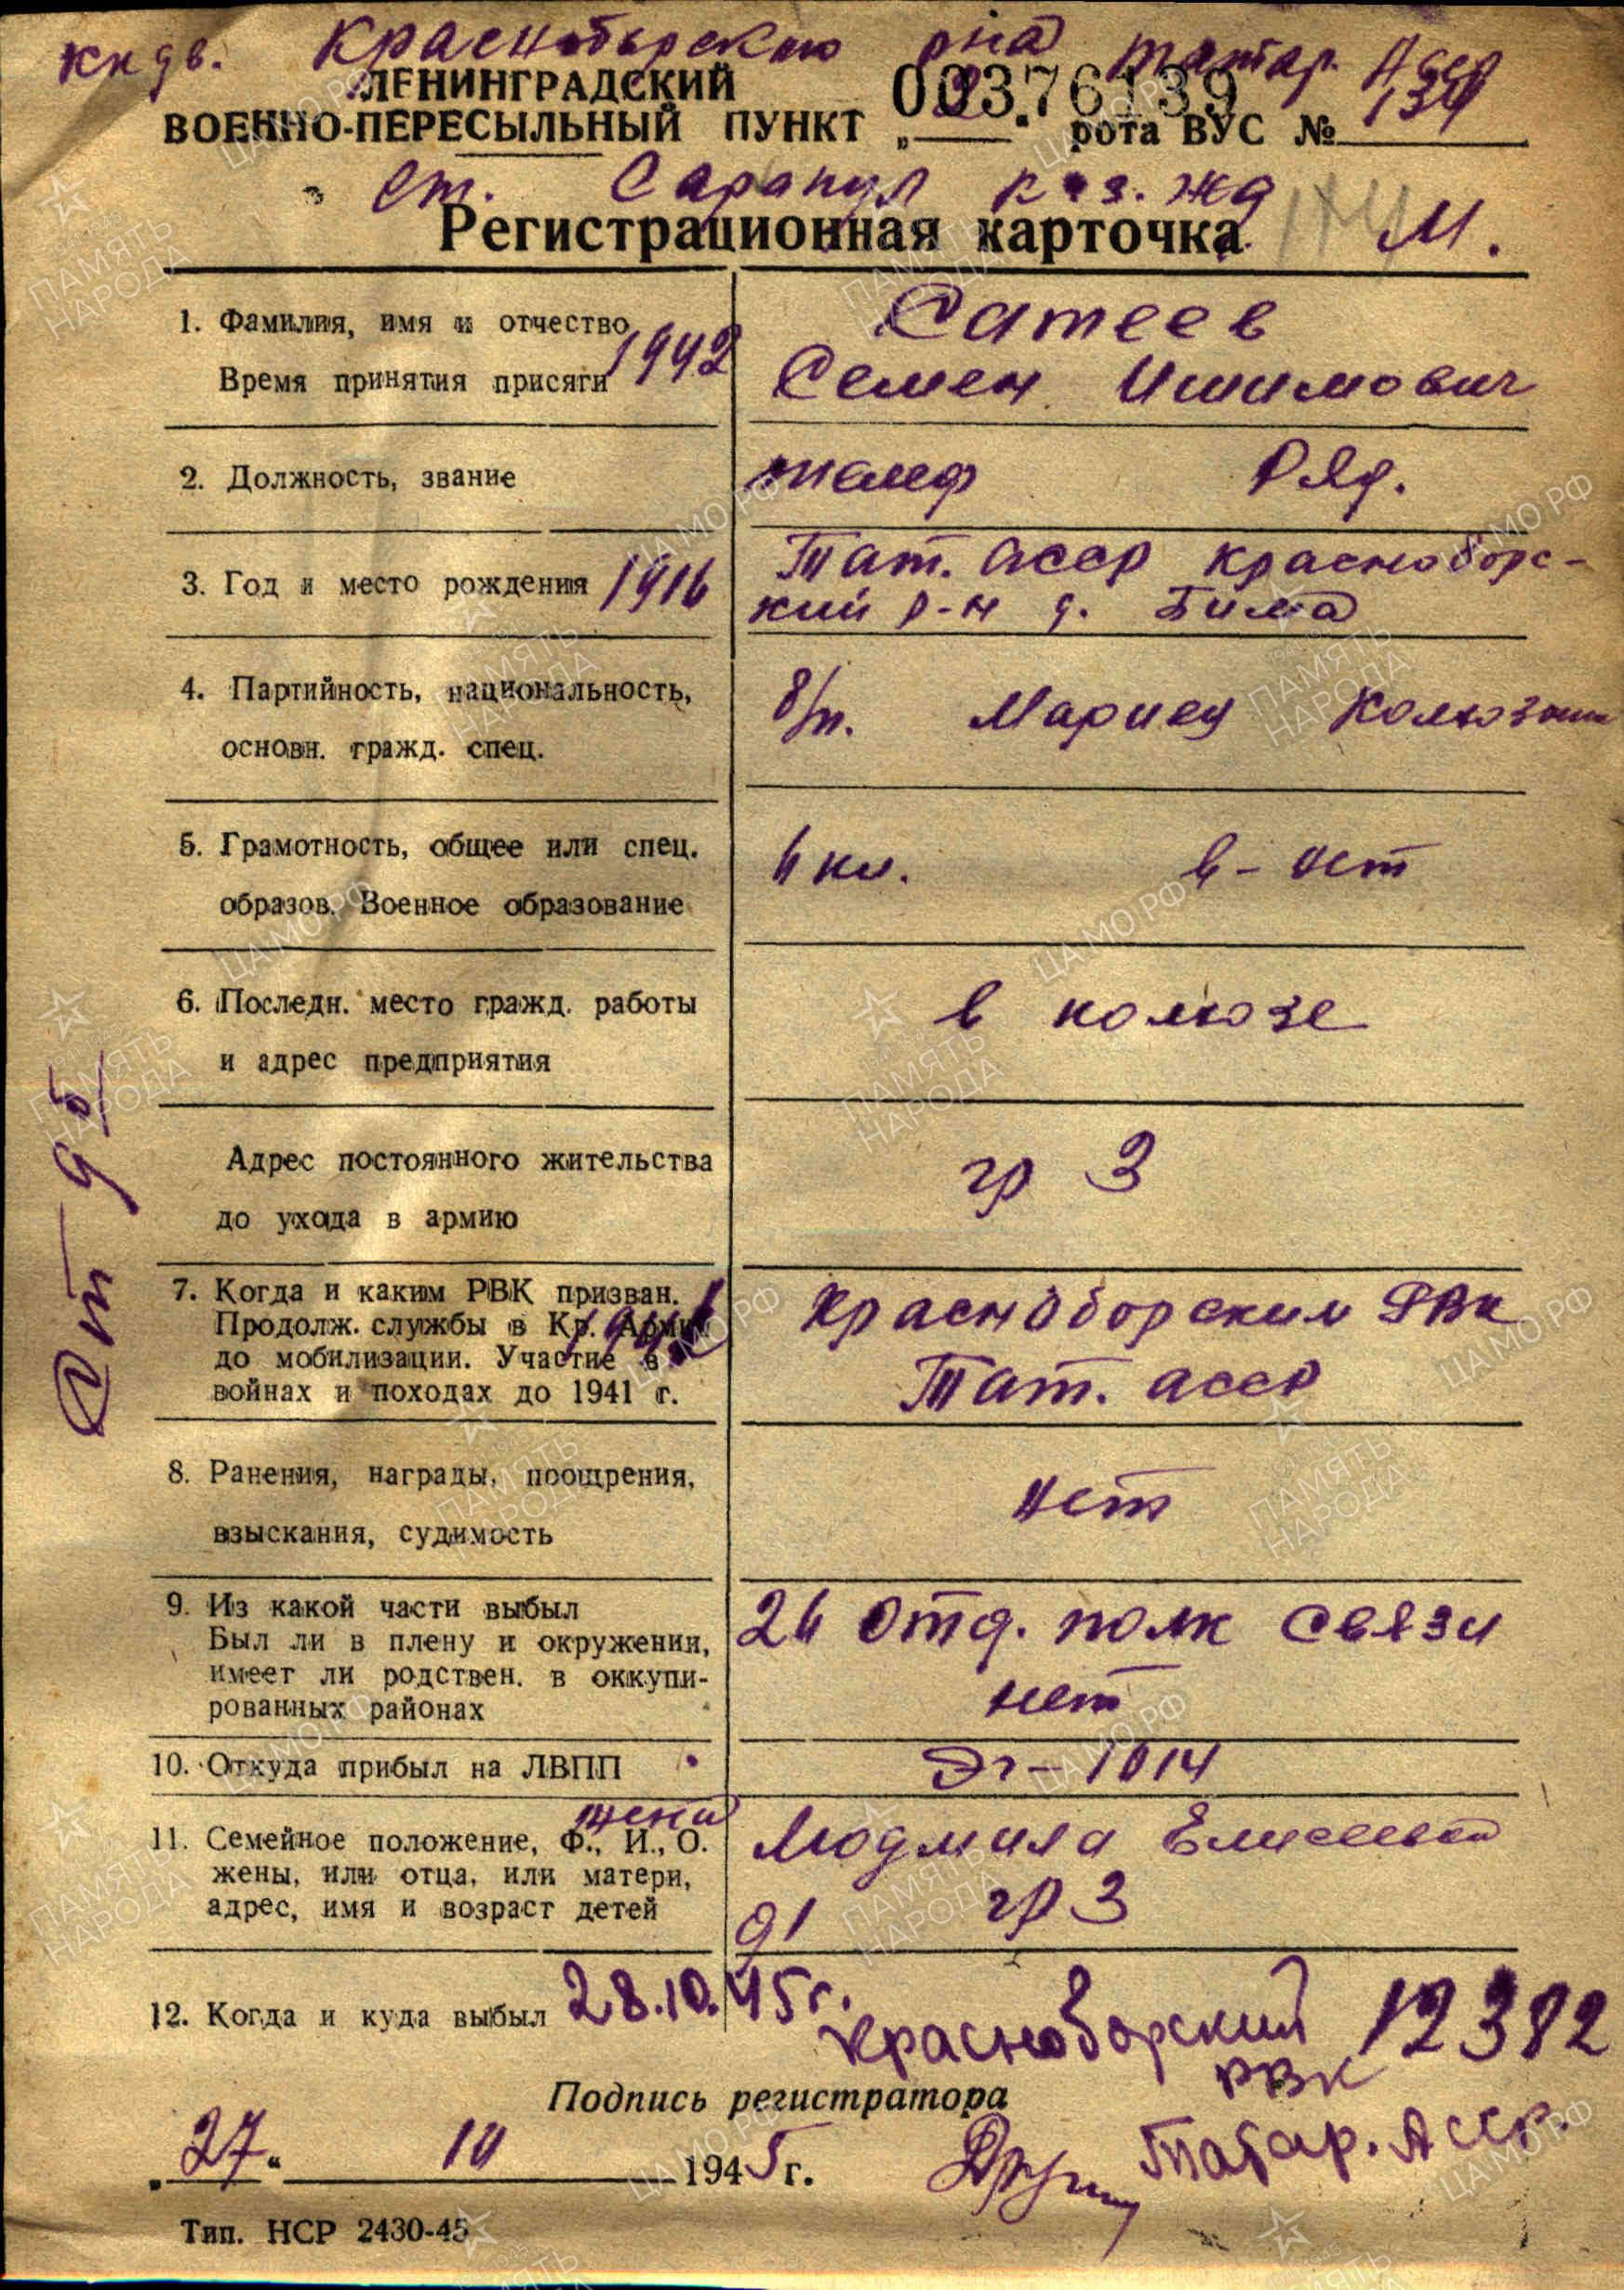 Красноборского р-на Татар. Асср
ЛЕНИНГРАДСКИЙ 00376139
ВОЕННО-ПЕРЕСЫЛЬНЫЙ ПУНКТ „ “ рота ВУС № 134
ст. Сарапул каз. жд
Регистрационная карточка М.
1. Фамилия, имя и отчество Сатеев
Время принятия присяги 1942 Семен Ишимович
2. Должность, звание Ряд.
3. Год и место рождения 1916 Тат. асср красноборс-
кий р-н д. Бима
4. Партийность, национальность, б/п. Мариец
основн. гражд. спец.
5. Грамотность, общее или спец. 4 кл. в - нет
образов. Военное образование
6. Последн. место гражд. работы в колхозе
и адрес предприятия
Адрес постоянного жительства гр 3
до ухода в армию
7. Когда и каким РВК призван. Красноборским РВК
Продолж. службы в Кр. Армии
до мобилизации. Участие в Тат. асср
войнах и походах до 1941 г.
8. Ранения, награды, поощрения, нет
взыскания, судимость
9. Из какой части выбыл 24 отд. полк связи
Был ли в плену и окружении,
имеет ли родствен. в оккупи- нет
рованных районах
10. Откуда прибыл на ЛВПП Эг-1014
жена
11. Семейное положение, Ф., И., О. Людмила
жены, или отца, или матери,
адрес, имя и возраст детей гр 3
91
12. Когда и куда выбыл 28.10.45г. Красноборский 12382
РВК
Подпись регистратора Татар. Асср.
„27“ 10 1945 г.
Тип. НСР 2430-45
От 95